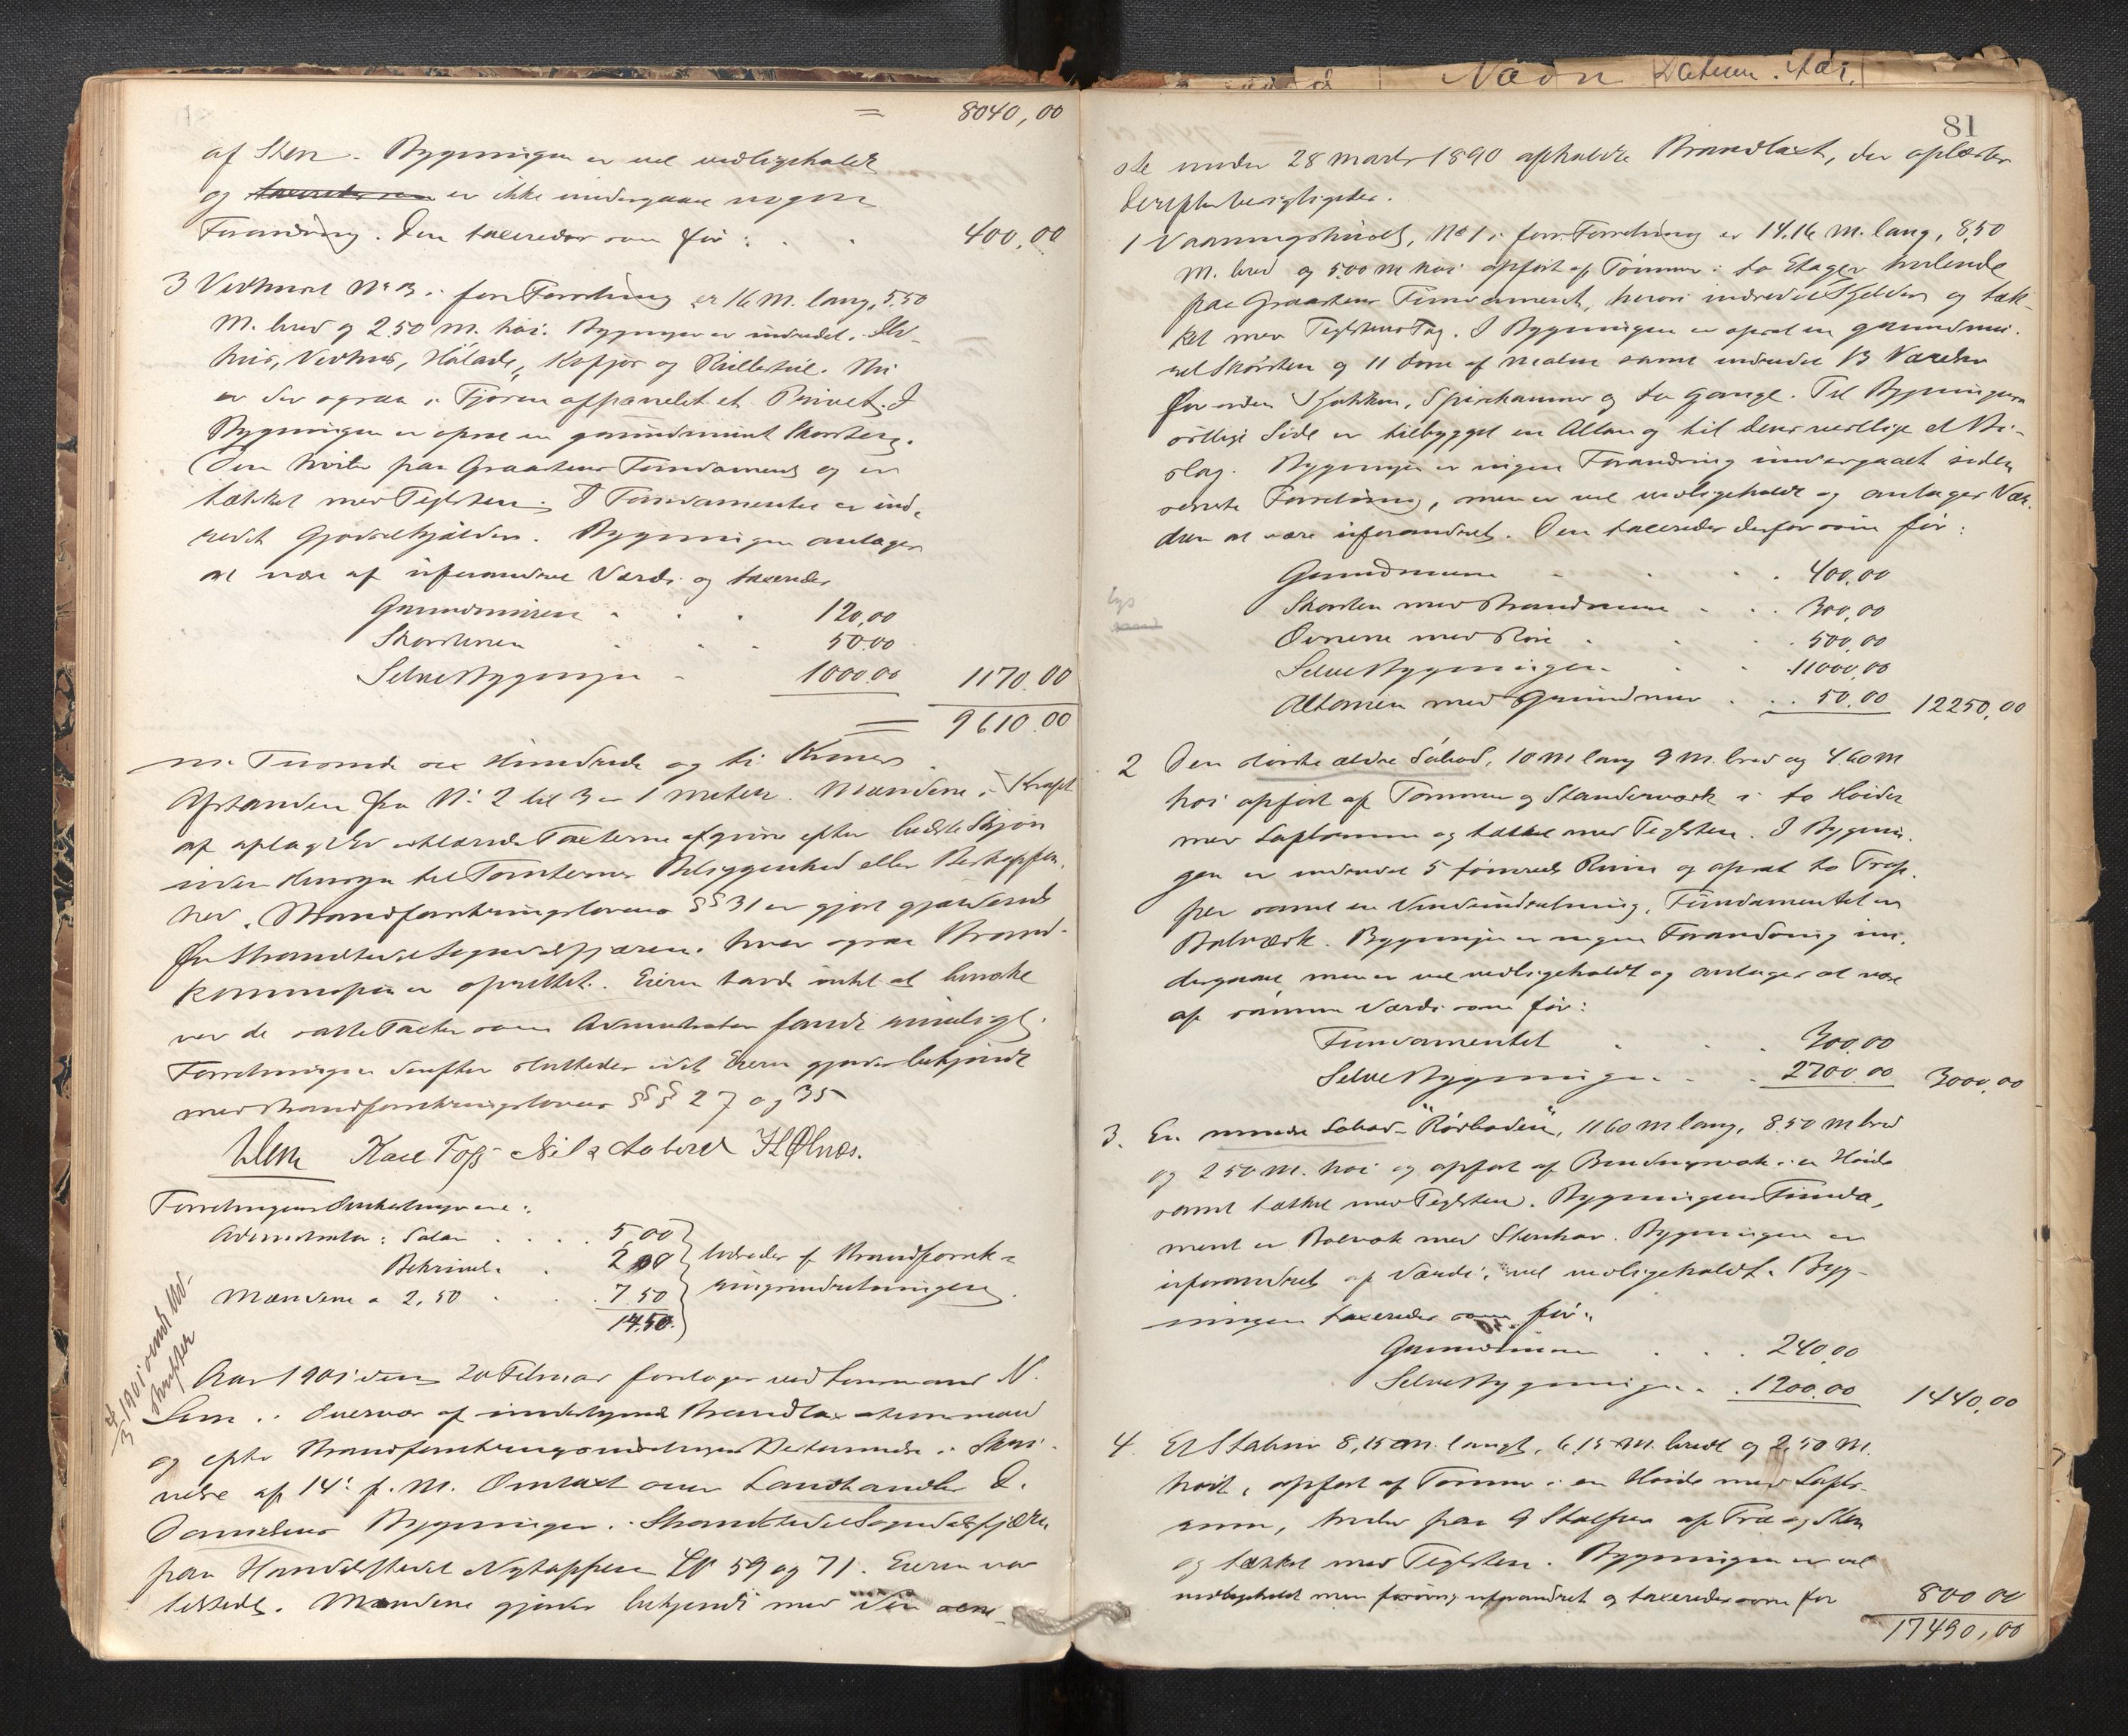 = 8040,00
af Sten. Bygningen er vel vedligeholdt
og er ikke undergaaet nogen
Forandring. Den taxeredes som før: . . 400,00
3 Vedhuset No 3 i forr. Forretning er 16 M. lang, 5.50
M. bred og 2.50 M. høi. Bygningen er indredet
hus, Vedhus, Hølade, og Rullestue. Nu
er der ogsaa i Fjøsen afpanelet et Privet. I
Bygningen er opsat en grundmuret Skorsten.
Den hviler paa Graastens Fundament og er
tækket med Teglsten. I Fundamentet er ind-
redet Gjødselkjælder. Bygningen antages
at være af uforandret Værdi og taxeredes
Grundmuren . . . 120,00
Skorstenen . . . 50.00
Selve Bygningen . 1000.00 1170.00
= 9610.00
ni Tusende sex Hundrede og ti Kroner.
Afstanden fra No 2 til 3 er 1 meter. Mændene i Kraft
af aflagt Ed erklærede Taxterne afgivne efter bedste Skjøn
uden Hensyn til Tomternes Beliggenhed eller Beskaffen-
hed. Brandforsikringslovens §§ 31 er gjort gjældende
for Strandstedet Sogndalsfjæren, hvor ogsaa Brand-
kommission er oprettet. Eieren havde intet at bemærke
ved de satte Taxter som Administrator fandt rimeligt.
Forretningen derefter sluttedes idet Eieren gjordes bekjendt
med Brandforsikringslovens §§ 27 og 35
Lem Karl Foss Nils Aaberg H Ølnæs.
Forretningens Omkostninger ere:
Administrator: Salær . . . . 5,00
Bekrivels. . 2 00 } udredes af Brandforsik-
Mændene a 2,50 . . 7.50 } ringsindretningen.
14.50.
3/3 1901 sendt Ud-
skrifter
Aar 1901 den 20 Februar foretoges ved Lensmand N.
Lem i Overvær af undertegnede Brandtaxationsmænd
og efter Brandforsikringsindretningens Bestemmelse i Skri-
velse af 14: f. M. Omtaxt over Landhandler D.
Danielsens Bygninger i Strandstedet Sogndalsfjæren
paa Handelsstedet Nytoppen LN 59 og 71. Eieren var
tilstede. Mændene gjordes bekjendt med den sene-
81
Navn Datum. Aar.
ste under 28 marts 1890 afholdte Brandtaxt, der oplæstes
Derefter besigtigedes.
1 Vaaningshuset, No 1 i forr. Forretning er 14.16 M. lang, 8.50
M. bred og 5.00 M høi opført af Tømmer i to Etager hvilende
paa Graastens Fundament, hvori indredet Kjelder og tæk-
ket med Teglstens Tag. I Bygningen er opsat en grundmu-
ret Skorsten og 11 Ovne af Malm samt indredet 13 Værelser
foruden Kjøkken, Spisekammer og to Gange. Til Bygningens
østlige Side er tilbygget en Altan og til dens vestlige et Bi-
slag. Bygningen er ingen Forandring undergaaet siden
seneste Forretning, men er vel vedligeholdt og antages Vær-
dien at være uforandret. Den taxeredes derfor som før:
Grundmuren . . . . 400,00
Skorsten med Brandmure . . . 300,00
Ovnene med Rør . . . 500,00
Selve Bygningen . . 11000,00
Altanen med Grundmur . . . 50.00 12250,00
2 Den største ældre Søbod, 10 M lang 9 M. bred og 4.60 M
høi opført af Tømmer og Standerværk i to Høider
med Saftømmer og tækket med Teglsten. I Bygnin-
gen er indredet 5 tømrede Rum og opsat to Trap-
per samt en Vindeindretning. Fundamentet er
Bolværk. Bygningen er ingen Forandring un-
dergaaet men er vel vedligeholdt og antages at være
af samme Værdi som før:
Fundamentet . . . 300.00
Selve Bygningen . . . 2700.00 3000,00
3. En mindre Søbod "Rødboden", 11.60 M lang, 8.50 M bred
og 2 50 M. høi og opført af Bindingsværk i en Høide
samt tækket med Teglsten. Bygningens Funda-
ment er Bolværk med Stenkar. Bygningen er
uforandret af Værdi, vel vedligeholdt. Byg-
ningen taxeredes som før:
Grundmuren . . . 240.00
Selve Bygningen . . 1200.00 1440,00
4. Et Stabur 8,15 M. langt, 6,15 M. bredt og 2,50 M.
høit, opført af Tømmer i en Høide med
hviler paa 9 Stolper af Træ og Sten
og tækket med Teglsten. Bygningen er vel
vedligeholdt men forøvrig uforandret og taxeredes som før 800 00
17490,00